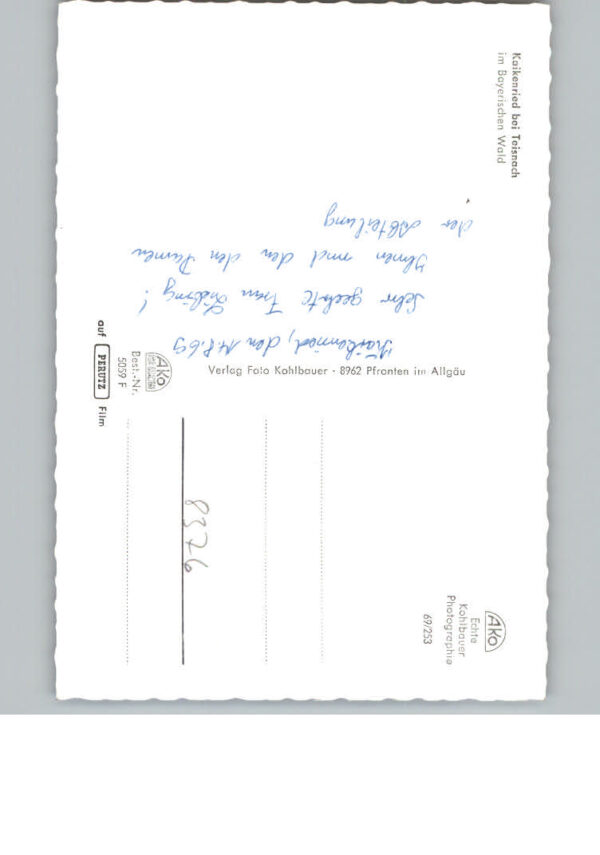 Kaikenried bei Teisnach
im Bayerischen Wald
Kaikenried, den 14.8.69
Sehr geehrte Frau
Ihnen und den Damen
der Abteilung
Verlag Foto Kohlbauer - 8962 Pfronten im Allgäu
AKO
Best.-Nr.
5059 F
auf PERUTZ Film
8376
AKO
Echte
Kohlbauer
Photographie
69/253